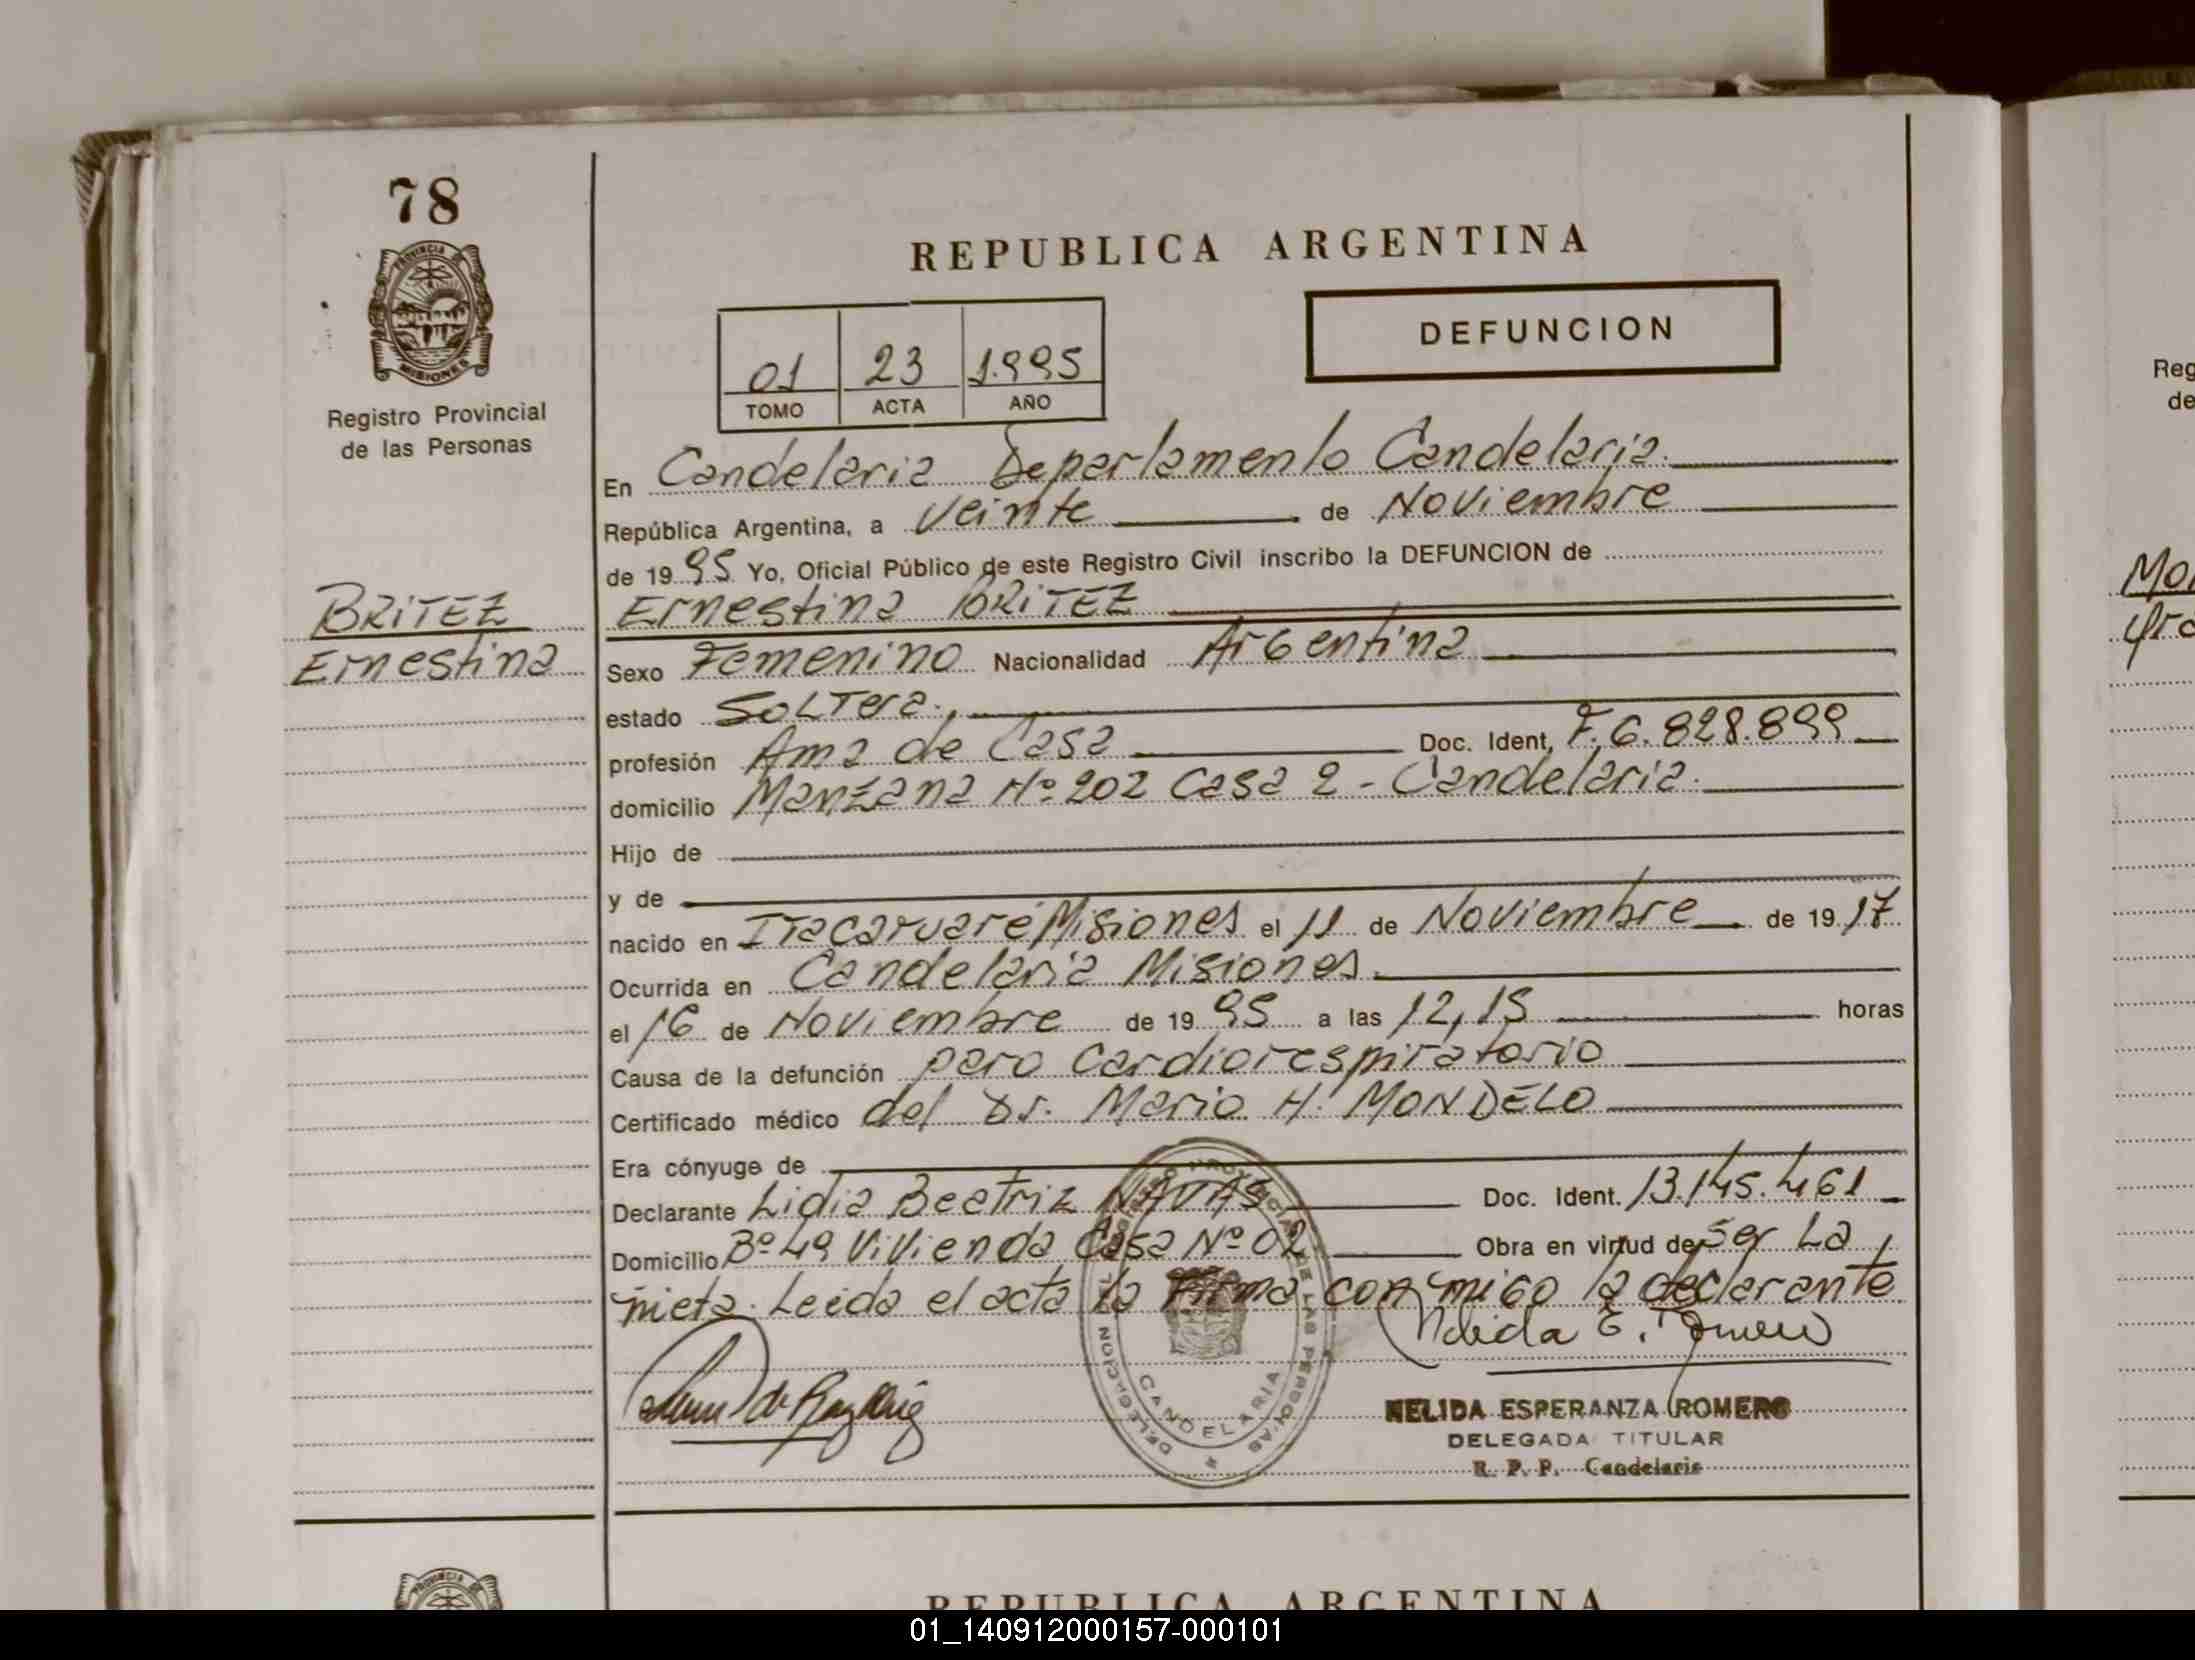 78
PROVINCIA DE
MISIONES
Registro Provincial
de las Personas
REPUBLICA ARGENTINA
DEFUNCION
01 23 1.995
TOMO ACTA AÑO
En Candelaria Departamento Candelaria.
República Argentina, a Veinte de Noviembre
de 1995 Yo, Oficial Público de este Registro Civil inscribo la DEFUNCION de
BRITEZ
Ernestina
Ernestina BRITEZ
Sexo Femenino Nacionalidad Argentina
estado Soltera.
profesión Ama de Casa Doc. Ident, F. 6.828.899
domicilio Manzana Nº 202 Casa 2 - Candelaria.
Hijo de
y de
nacido en Itacaruaré Misiones el 11 de Noviembre de 1917
Ocurrida en Candelaria Misiones.
el 16 de Noviembre de 1995 a las 12,15 horas
Causa de la defunción paro Cardiorespiratorio
Certificado médico del Dr. Mario H. MONDELO
Era cónyuge de
Declarante Lidia Beatriz NAVAS Doc. Ident. 13.145.461
Domicilio Bº 49 Vivienda Casa Nº 02 Obra en virtud de ser La
nieta. Leída el acta la Firma conmigo la declarante
Nelida E. Romero
NELIDA ESPERANZA ROMERO
DELEGADA TITULAR
R. P. P. Candelaria
DELEGACION
CANDELARIA
REPUBLICA ARGENTINA
PROVINCIA DE
Reg
de
01_140912000157-000101